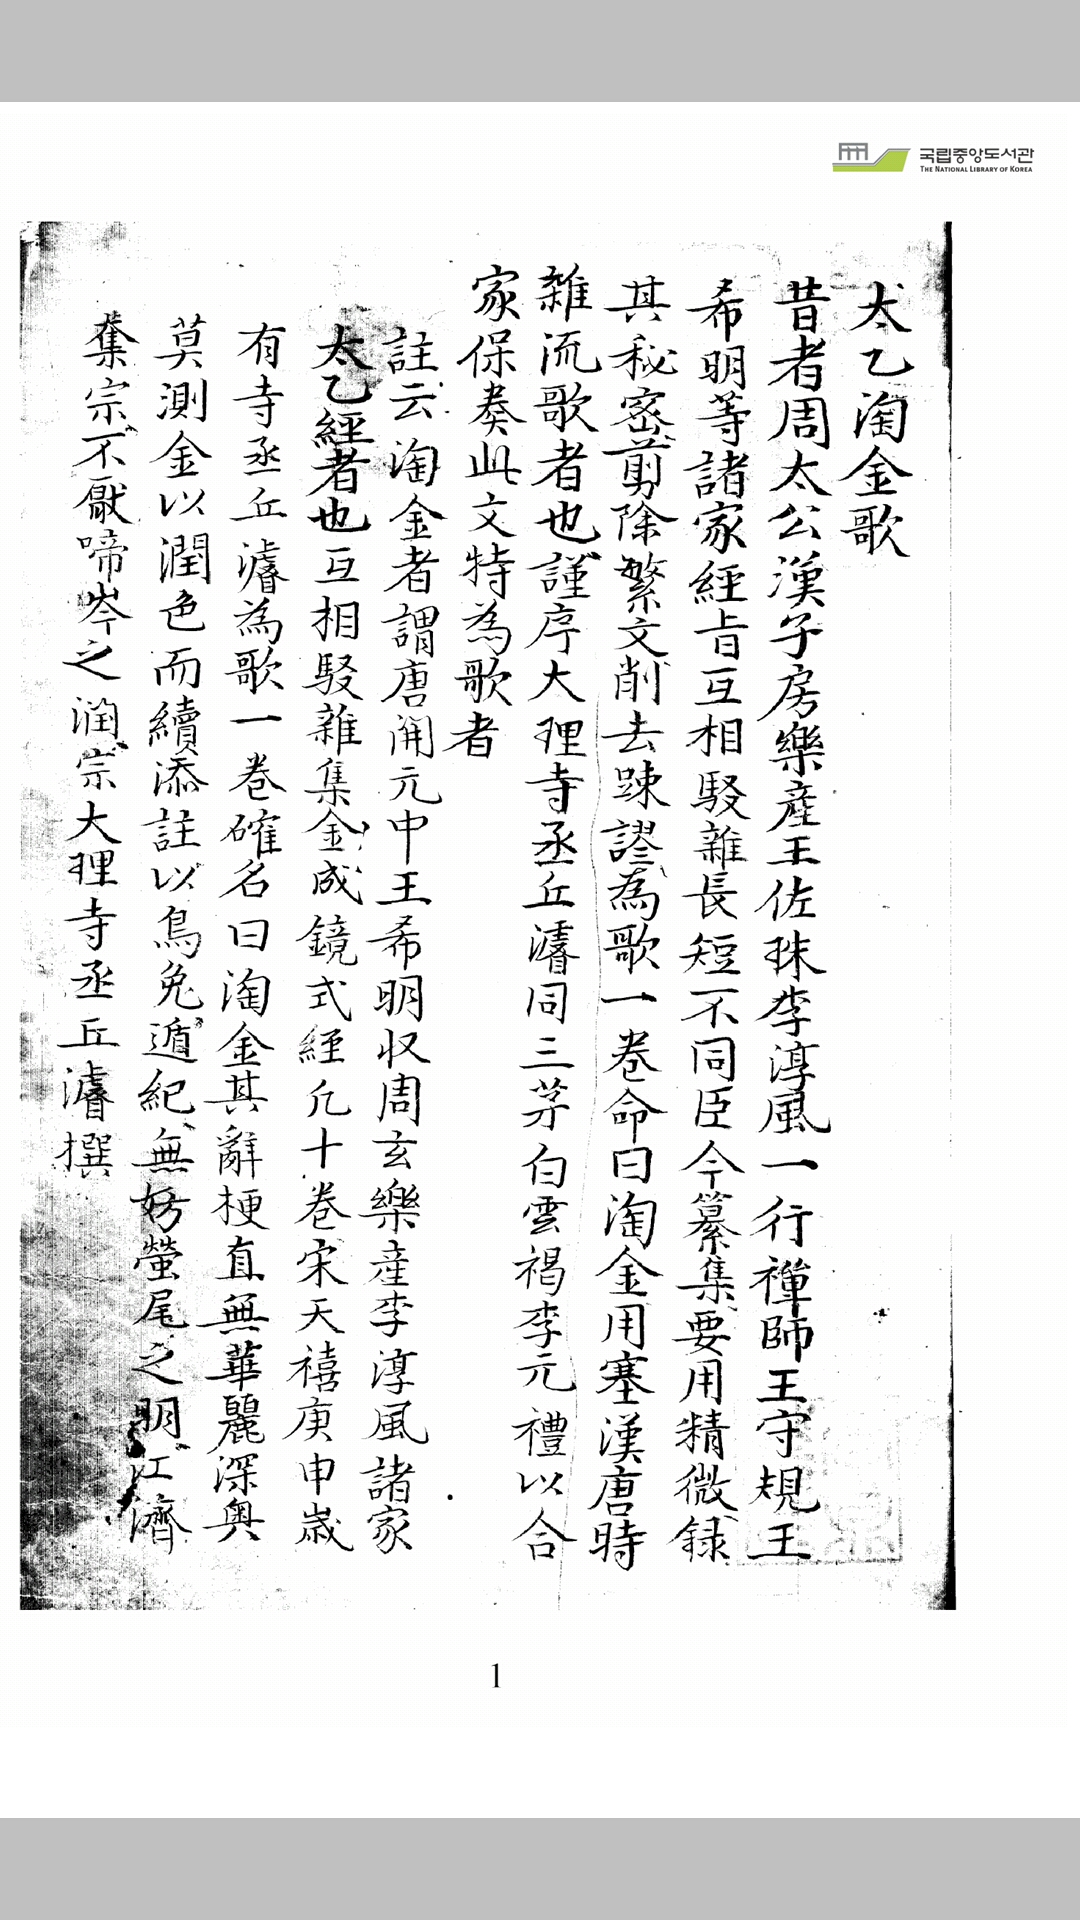 국립중앙도서관
THE NATIONAL LIBRARY OF KOREA
太乙淘金歌
昔者周太公漢子房樂産王佐珠李淳風一行禪師王守規王
希明等諸家經旨互相駁雜長短不同臣今纂集要用精微録
其秘密剪除繁文削去踈謬為歌一卷命曰淘金用塞漢唐時
雜流歌者也謹序大理寺丞丘濬同三茅白雲褐李元禮以合
家保奏此文特為歌者
註云淘金者謂唐開元中王希明収周玄樂産李淳風諸家
太乙經者也互相駁雜集金成鏡式經凢十巻宋天禧庚申歳
有寺丞丘濬為歌一巻確名曰淘金其辭梗直無華麗深奥
莫測金以潤色而續添註以烏兔遁紀無妨螢尾之明江濟
集宗不厭啼岑之潤宗大理寺丞丘濬撰
1